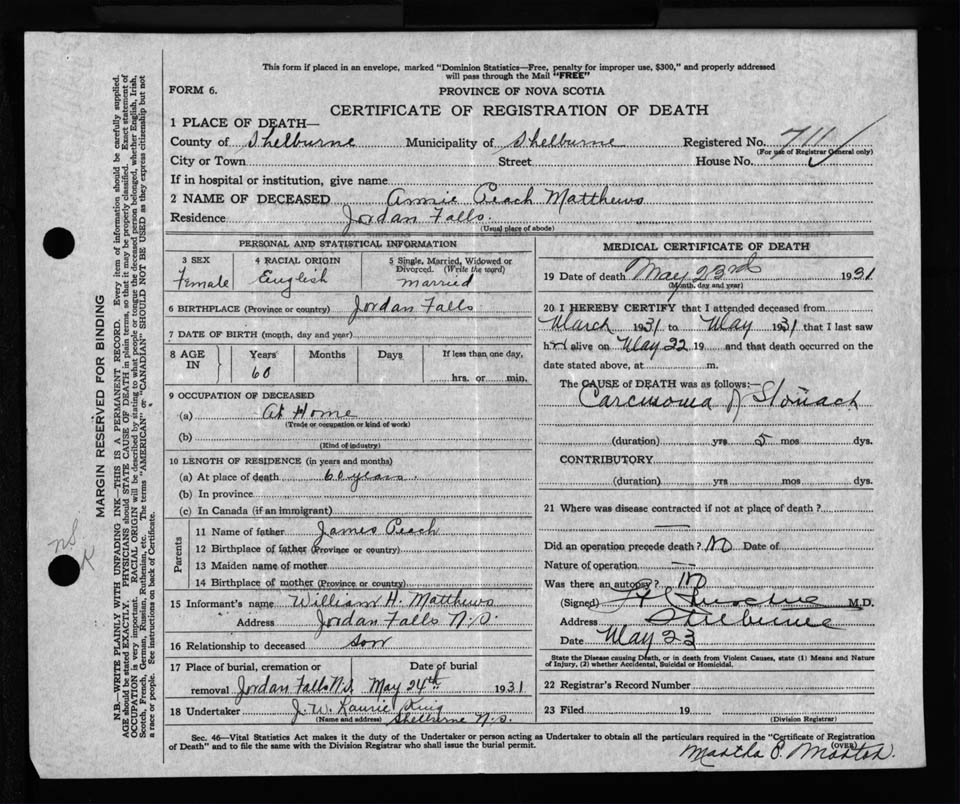 This form if placed in an envelope, marked "Dominion Statistics—Free, penalty for improper use, $300," and properly addressed
will pass through the Mail "FREE"
FORM 6.
PROVINCE OF NOVA SCOTIA
CERTIFICATE OF REGISTRATION OF DEATH
1 PLACE OF DEATH—
County of Shelburne Municipality of Shelburne Registered No. 711
(For use of Registrar General only)
City or Town Street House No.
If in hospital or institution, give name
2 NAME OF DECEASED Annie Peach Matthews
Residence Jordan Falls.
(Usual place of abode)
PERSONAL AND STATISTICAL INFORMATION
3 SEX 4 RACIAL ORIGIN 5 Single, Married, Widowed or
Divorced. (Write the word)
Female English married
6 BIRTHPLACE (Province or country) Jordan Falls
7 DATE OF BIRTH (month, day and year)
8 AGE IN Years Months Days If less than one day,
60 hrs. or min.
9 OCCUPATION OF DECEASED
(a) At Home
(Trade or occupation or kind of work)
(b)
(Kind of industry)
10 LENGTH OF RESIDENCE (in years and months)
(a) At place of death 60 years.
(b) In province
(c) In Canada (if an immigrant)
Parents
11 Name of father James Peach
12 Birthplace of father (Province or country)
13 Maiden name of mother
14 Birthplace of mother (Province or country)
15 Informant's name William H. Matthews
" Address Jordan Falls N.S.
16 Relationship to deceased son
17 Place of burial, cremation or Date of burial
removal Jordan Falls N.S. May 24th 1931
18 Undertaker J. W. Laurie King
(Name and address) Shelburne N.S.
MEDICAL CERTIFICATE OF DEATH
19 Date of death May 23rd 1931
(Month, day and year)
20 I HEREBY CERTIFY that I attended deceased from
March 1931 to May 1931 that I last saw
her alive on May 22 19 and that death occurred on the
date stated above, at m.
The CAUSE OF DEATH was as follows:
Carcinoma of Stomach
(duration) yrs 5 mos dys.
CONTRIBUTORY
(duration) yrs mos dys.
21 Where was disease contracted if not at place of death?
—
Did an operation precede death? No Date of
Nature of operation —
Was there an autopsy? No
(Signed) M.D.
Address Shelburne
Date May 23
State the Disease causing Death, or in death from Violent Causes, state (1) Means and Nature
of Injury, (2) whether Accidental, Suicidal or Homicidal.
22 Registrar's Record Number
23 Filed 19
(Division Registrar)
Sec. 46—Vital Statistics Act makes it the duty of the Undertaker or person acting as Undertaker to obtain all the particulars required in the "Certificate of Registration
of Death" and to file the same with the Division Registrar who shall issue the burial permit.
(OVER)
Martha P. Morton.
MARGIN RESERVED FOR BINDING
N.B.—WRITE PLAINLY WITH UNFADING INK—THIS IS A PERMANENT RECORD. Every item of information should be carefully supplied.
AGE should be stated EXACTLY. PHYSICIANS should STATE CAUSE OF DEATH in plain terms, so that it may be properly classified. Exact statement of
OCCUPATION is very important. RACIAL ORIGIN will be described by stating to what people or tongue the deceased person belonged, whether English, Irish,
Scotch, French, German, Russian, Ruthenian, etc. The terms "AMERICAN" or "CANADIAN" SHOULD NOT BE USED as they express citizenship but not
a race or people. See instructions on back of Certificate.
ns
K